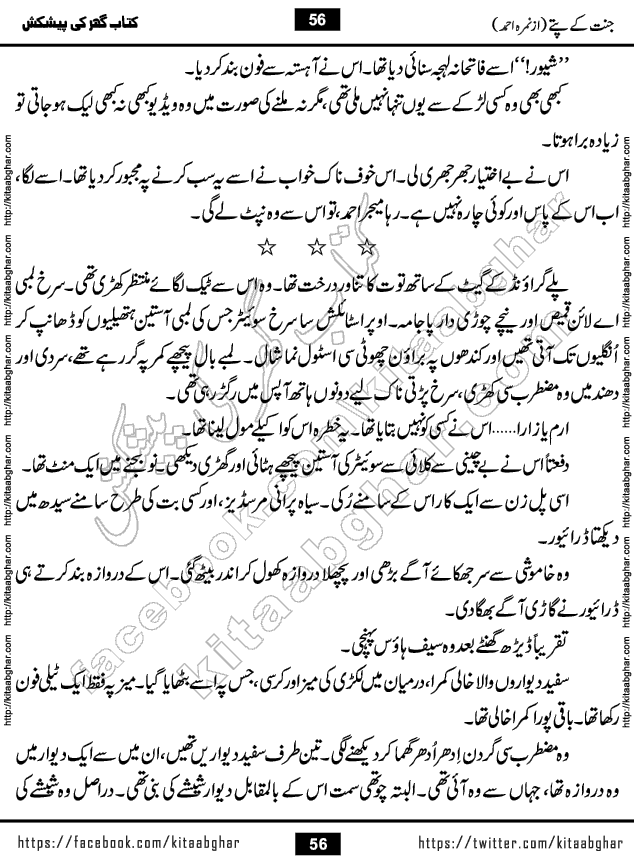 جنت کے پتے (از نمرہ احمد) 56 کتاب گھر کی پیشکش
’’شیور!‘‘ اسے فاتحانہ لہجہ سنائی دیا تھا۔ اس نے آہستہ سے فون بند کر دیا۔
کبھی بھی وہ کسی لڑکے سے یوں تنہا نہیں ملی تھی، مگر نہ ملنے کی صورت میں وہ ویڈیو کبھی نہ کبھی لیک ہو جاتی تو
زیادہ برا ہوتا۔
اس نے بے اختیار جھرجھری لی۔ اس خوف ناک خواب نے اسے یہ سب کرنے پہ مجبور کر دیا تھا۔ اسے لگا،
اب اس کے پاس اور کوئی چارہ نہیں ہے۔ رہا میجر احمد، تو اس سے وہ نپٹ لے گی۔
☆ ☆ ☆
پلے گراؤنڈ کے گیٹ کے ساتھ توت کا تناور درخت تھا۔ وہ اس سے ٹیک لگائے منتظر کھڑی تھی۔ سرخ لمبی
اے لائن قمیص اور نیچے چوڑی دار پاجامہ۔ اوپر اسٹائلش سا سرخ سوئیٹر جس کی لمبی آستین ہتھیلیوں کو ڈھانپ کر
انگلیوں تک آتی تھیں اور کندھوں پہ براؤن چھوٹی سی اسٹول نما شال۔ لمبے بال پیچھے کمر پہ گر رہے تھے، سردی اور
دھند میں وہ مضطرب سی کھڑی، سرخ پڑتی ناک لیے دونوں ہاتھ آپس میں رگڑ رہی تھی۔
ارم یا زارا......اس نے کسی کو نہیں بتایا تھا۔ یہ خطرہ اس کو اکیلے مول لینا تھا۔
دفعتاً اس نے بے چینی سے کلائی سے سوئیٹر کی آستین پیچھے ہٹائی اور گھڑی دیکھی۔ نو بجنے میں ایک منٹ تھا۔
اسی پل زن سے ایک کار اس کے سامنے رکی۔ سیاہ پرانی مرسڈیز، اور کسی بت کی طرح سامنے سیدھ میں
دیکھتا ڈرائیور۔
وہ خاموشی سے سر جھکائے آگے بڑھی اور پچھلا دروازہ کھول کر اندر بیٹھ گئی۔ اس کے دروازہ بند کرتے ہی
ڈرائیور نے گاڑی آگے بھگا دی۔
تقریباً ڈیڑھ گھنٹے بعد وہ سیف ہاؤس پہنچی۔
سفید دیواروں والا خالی کمرا، درمیان میں لکڑی کی میز اور کرسی، جس پہ اسے بٹھایا گیا۔ میز پہ فقط ایک ٹیلی فون
رکھا تھا۔ باقی پورا کمرا خالی تھا۔
وہ مضطرب سی گردن اِدھر اُدھر گھما کر دیکھنے لگی۔ تین طرف سفید دیواریں تھیں، ان میں سے ایک دیوار میں
وہ دروازہ تھا، جہاں سے وہ آئی تھی۔ البتہ چوتھی سمت اس کے بالمقابل دیوار شیشے کی بنی تھی۔ دراصل وہ شیشے کی
https://facebook.com/kitaabghar 56 https://twitter.com/kitaabghar
http://kitaabghar.com http://kitaabghar.com http://kitaabghar.com http://kitaabghar.com http://kitaabghar.com http://kitaabghar.com
http://kitaabghar.com http://kitaabghar.com http://kitaabghar.com http://kitaabghar.com http://kitaabghar.com http://kitaabghar.com
کتاب گھر کی پیشکش
kitaabghar.com
facebook.com/kitaabghar